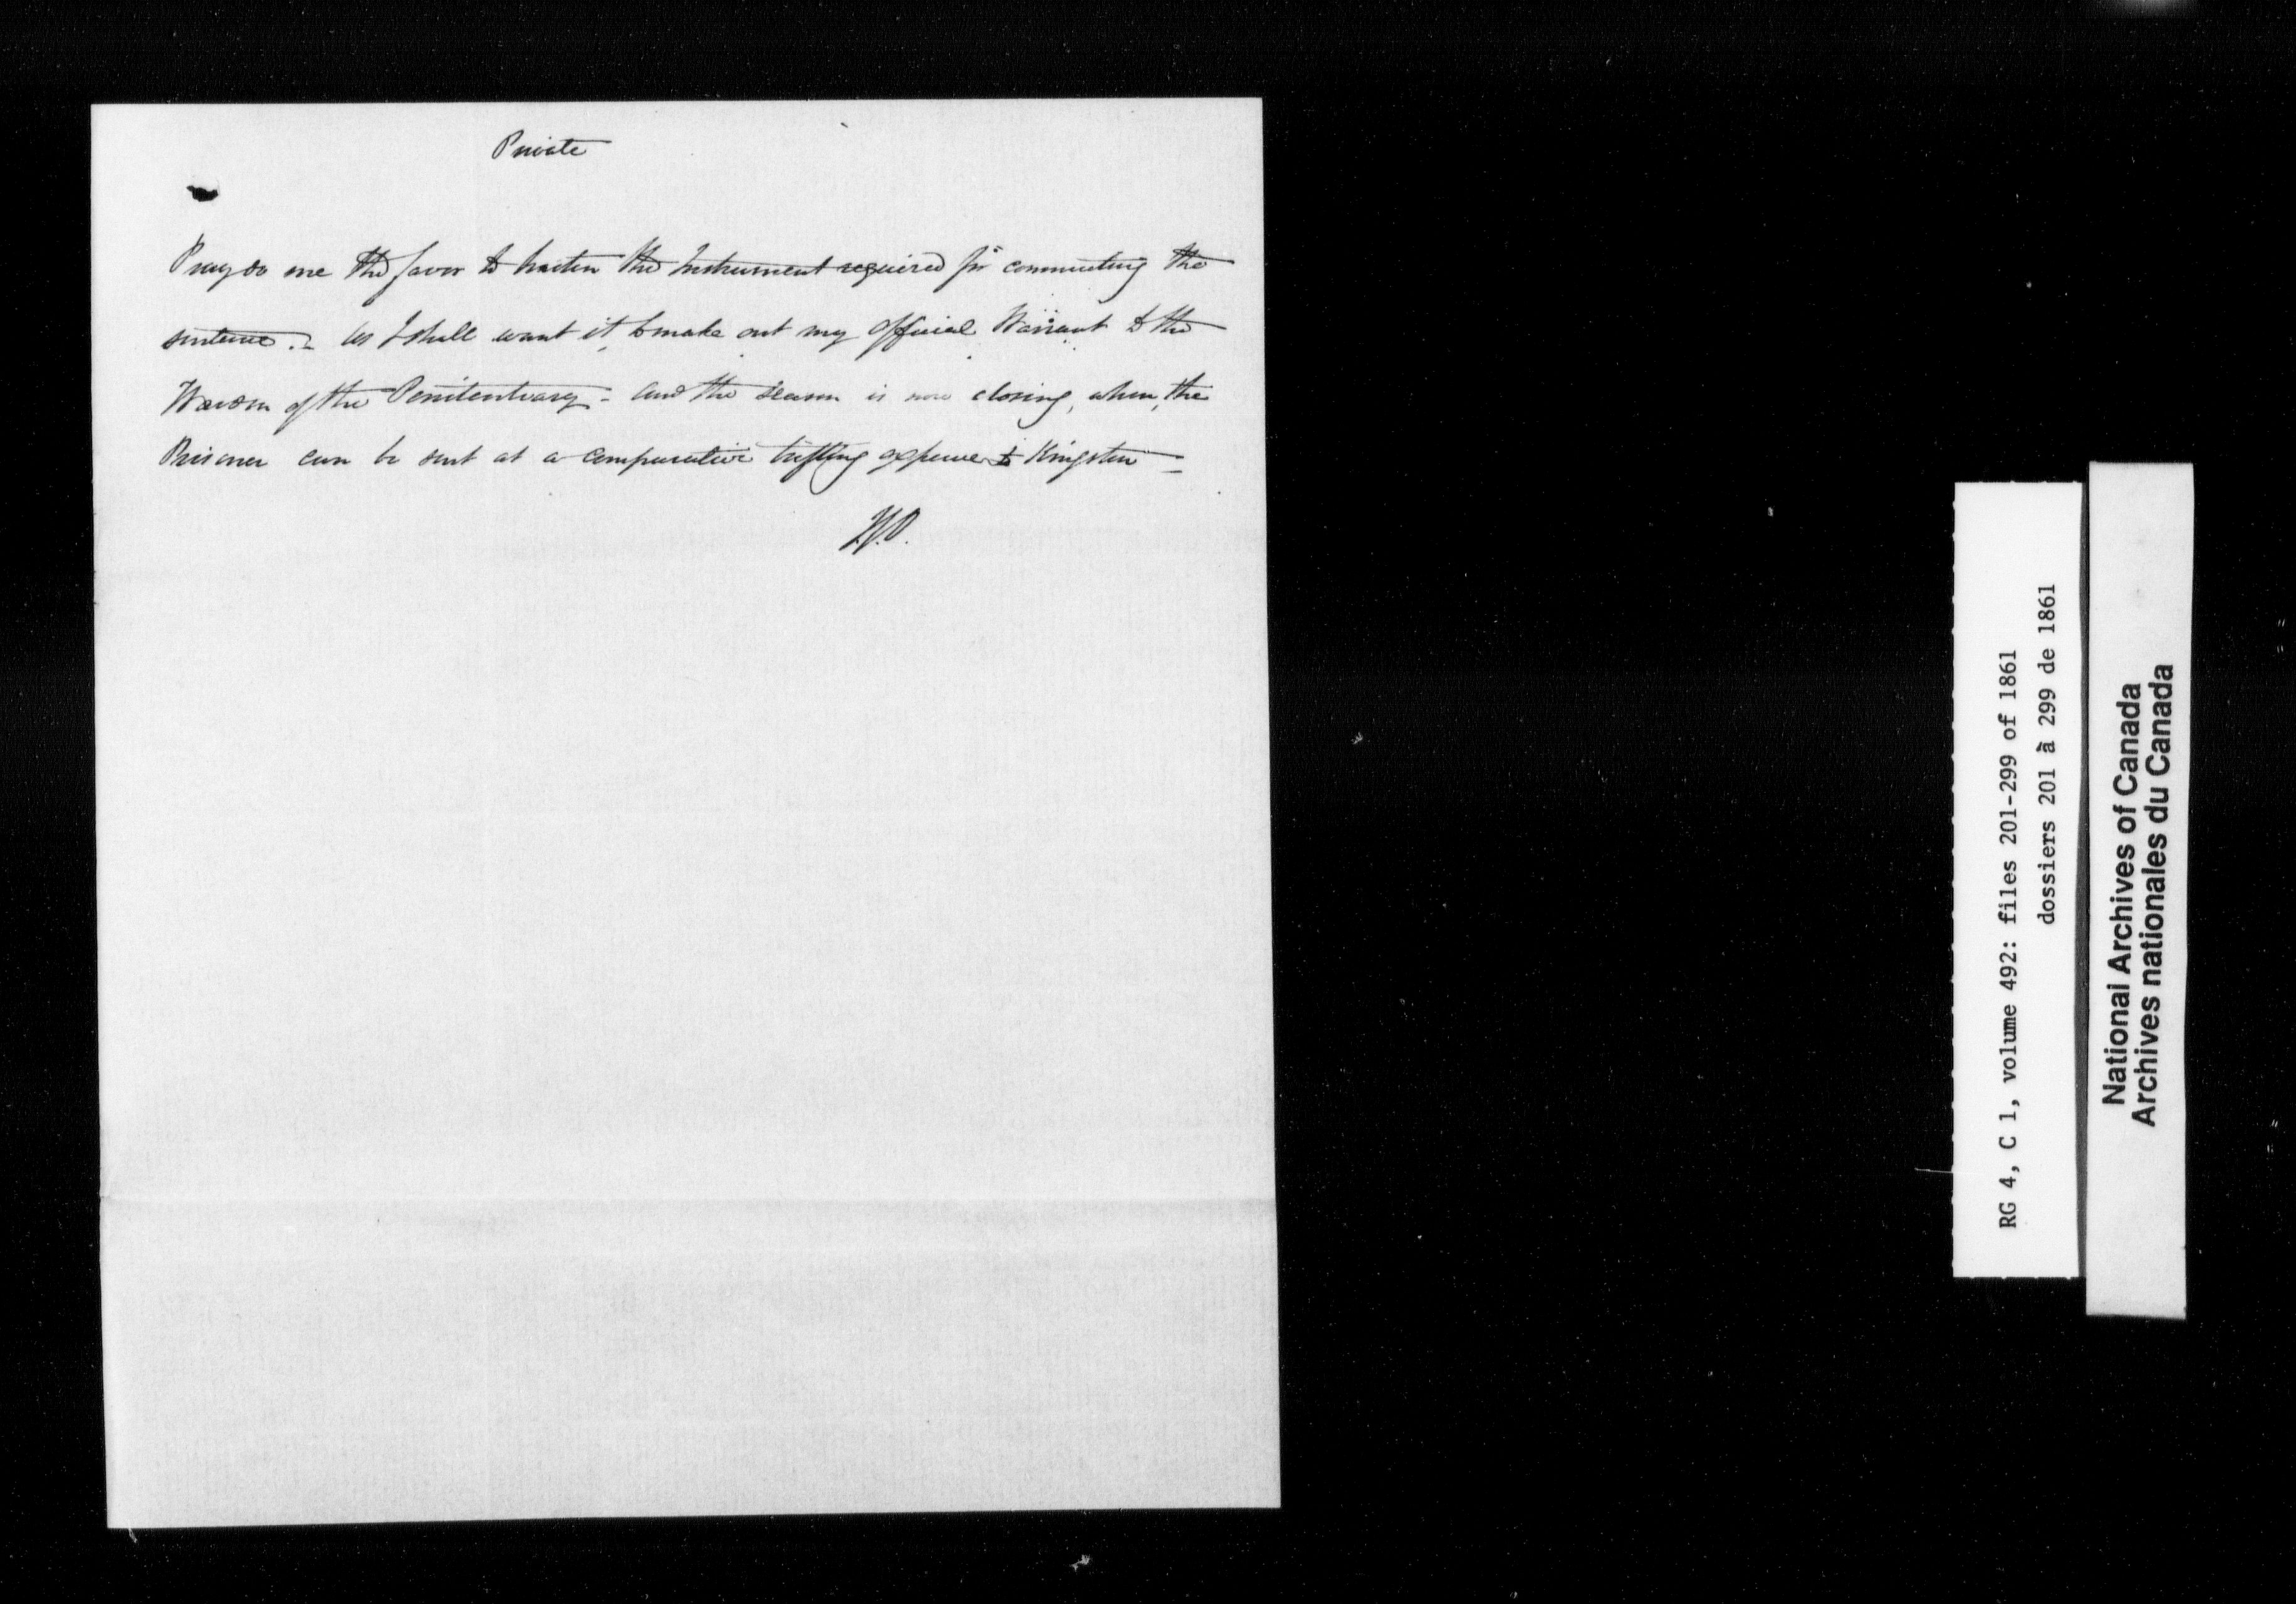 Private
Pray do me the favor to hasten the Instrument required for commuting the
sentence. - as I shall want it, to make out my official Warrant to the
Warden of the Penitentiary - and the season is now closing, when, the
Prisoner can be sent at a comparative trifling expense to Kingston -
RG 4, C 1, volume 492: files 201-299 of 1861
dossiers 201 à 299 de 1861
National Archives of Canada
Archives nationales du Canada